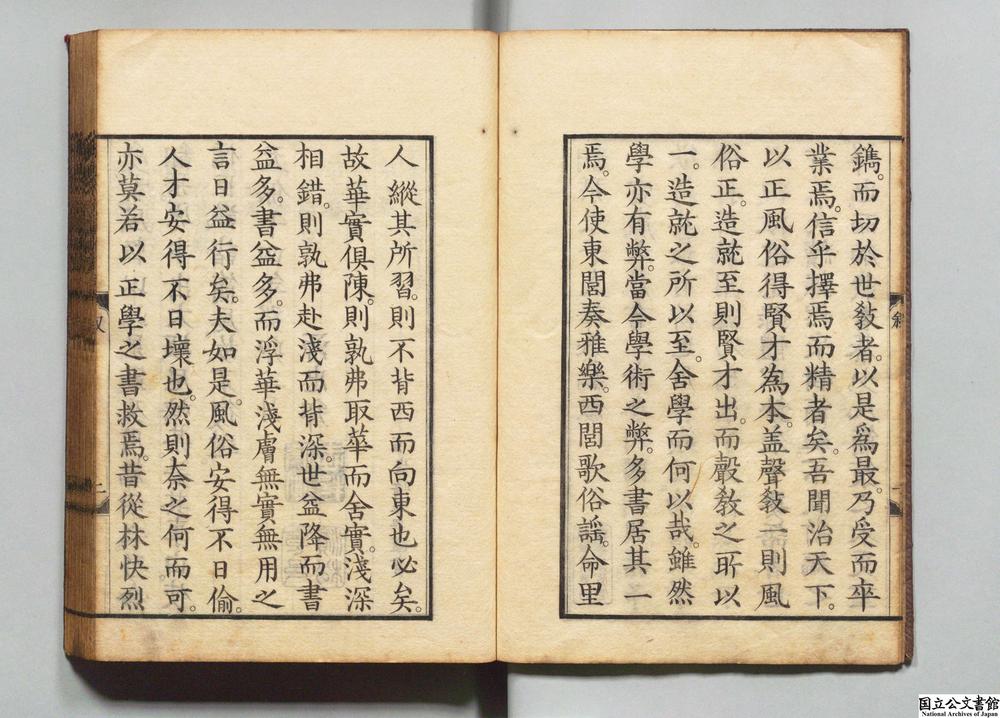 鐫。而切於世敎者。以是爲最。乃受而卒
業焉。信乎擇焉而精者矣。吾聞治天下。
以正風俗得賢才為本。盖聲敎一則風
俗正。造就至則賢才出。而聲敎之所以
一。造就之所以至。舍學而何以哉。雖然
學亦有弊。當今學術之弊。多書居其一
焉。今使東閭奏雅樂。西閭歌俗謡。命里
人縱其所習。則不背西而向東也必矣。
故華實俱陳。則孰弗取華而舍實。淺深
相錯。則孰弗赴淺而背深。世益降而書
益多。書益多。而浮華淺膚無實無用之
言日益行矣。夫如是。風俗安得不日偷。
人才安得不日壞也。然則奈之何而可。
亦莫若以正學之書救焉。昔從林快烈
叙
二
国立公文書館
National Archives of Japan